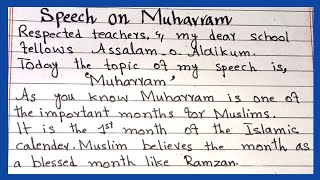 Speech on Muharram
Respected teachers, &, my dear school
fellows Assalam-o-Alaikum.
Today the topic of my speech is,
'Muharram'
As you know Muharram is one of
the important months for Muslims.
It is the 1st month of the Islamic
calender. Muslim believes the month as
a blessed month like Ramzan.